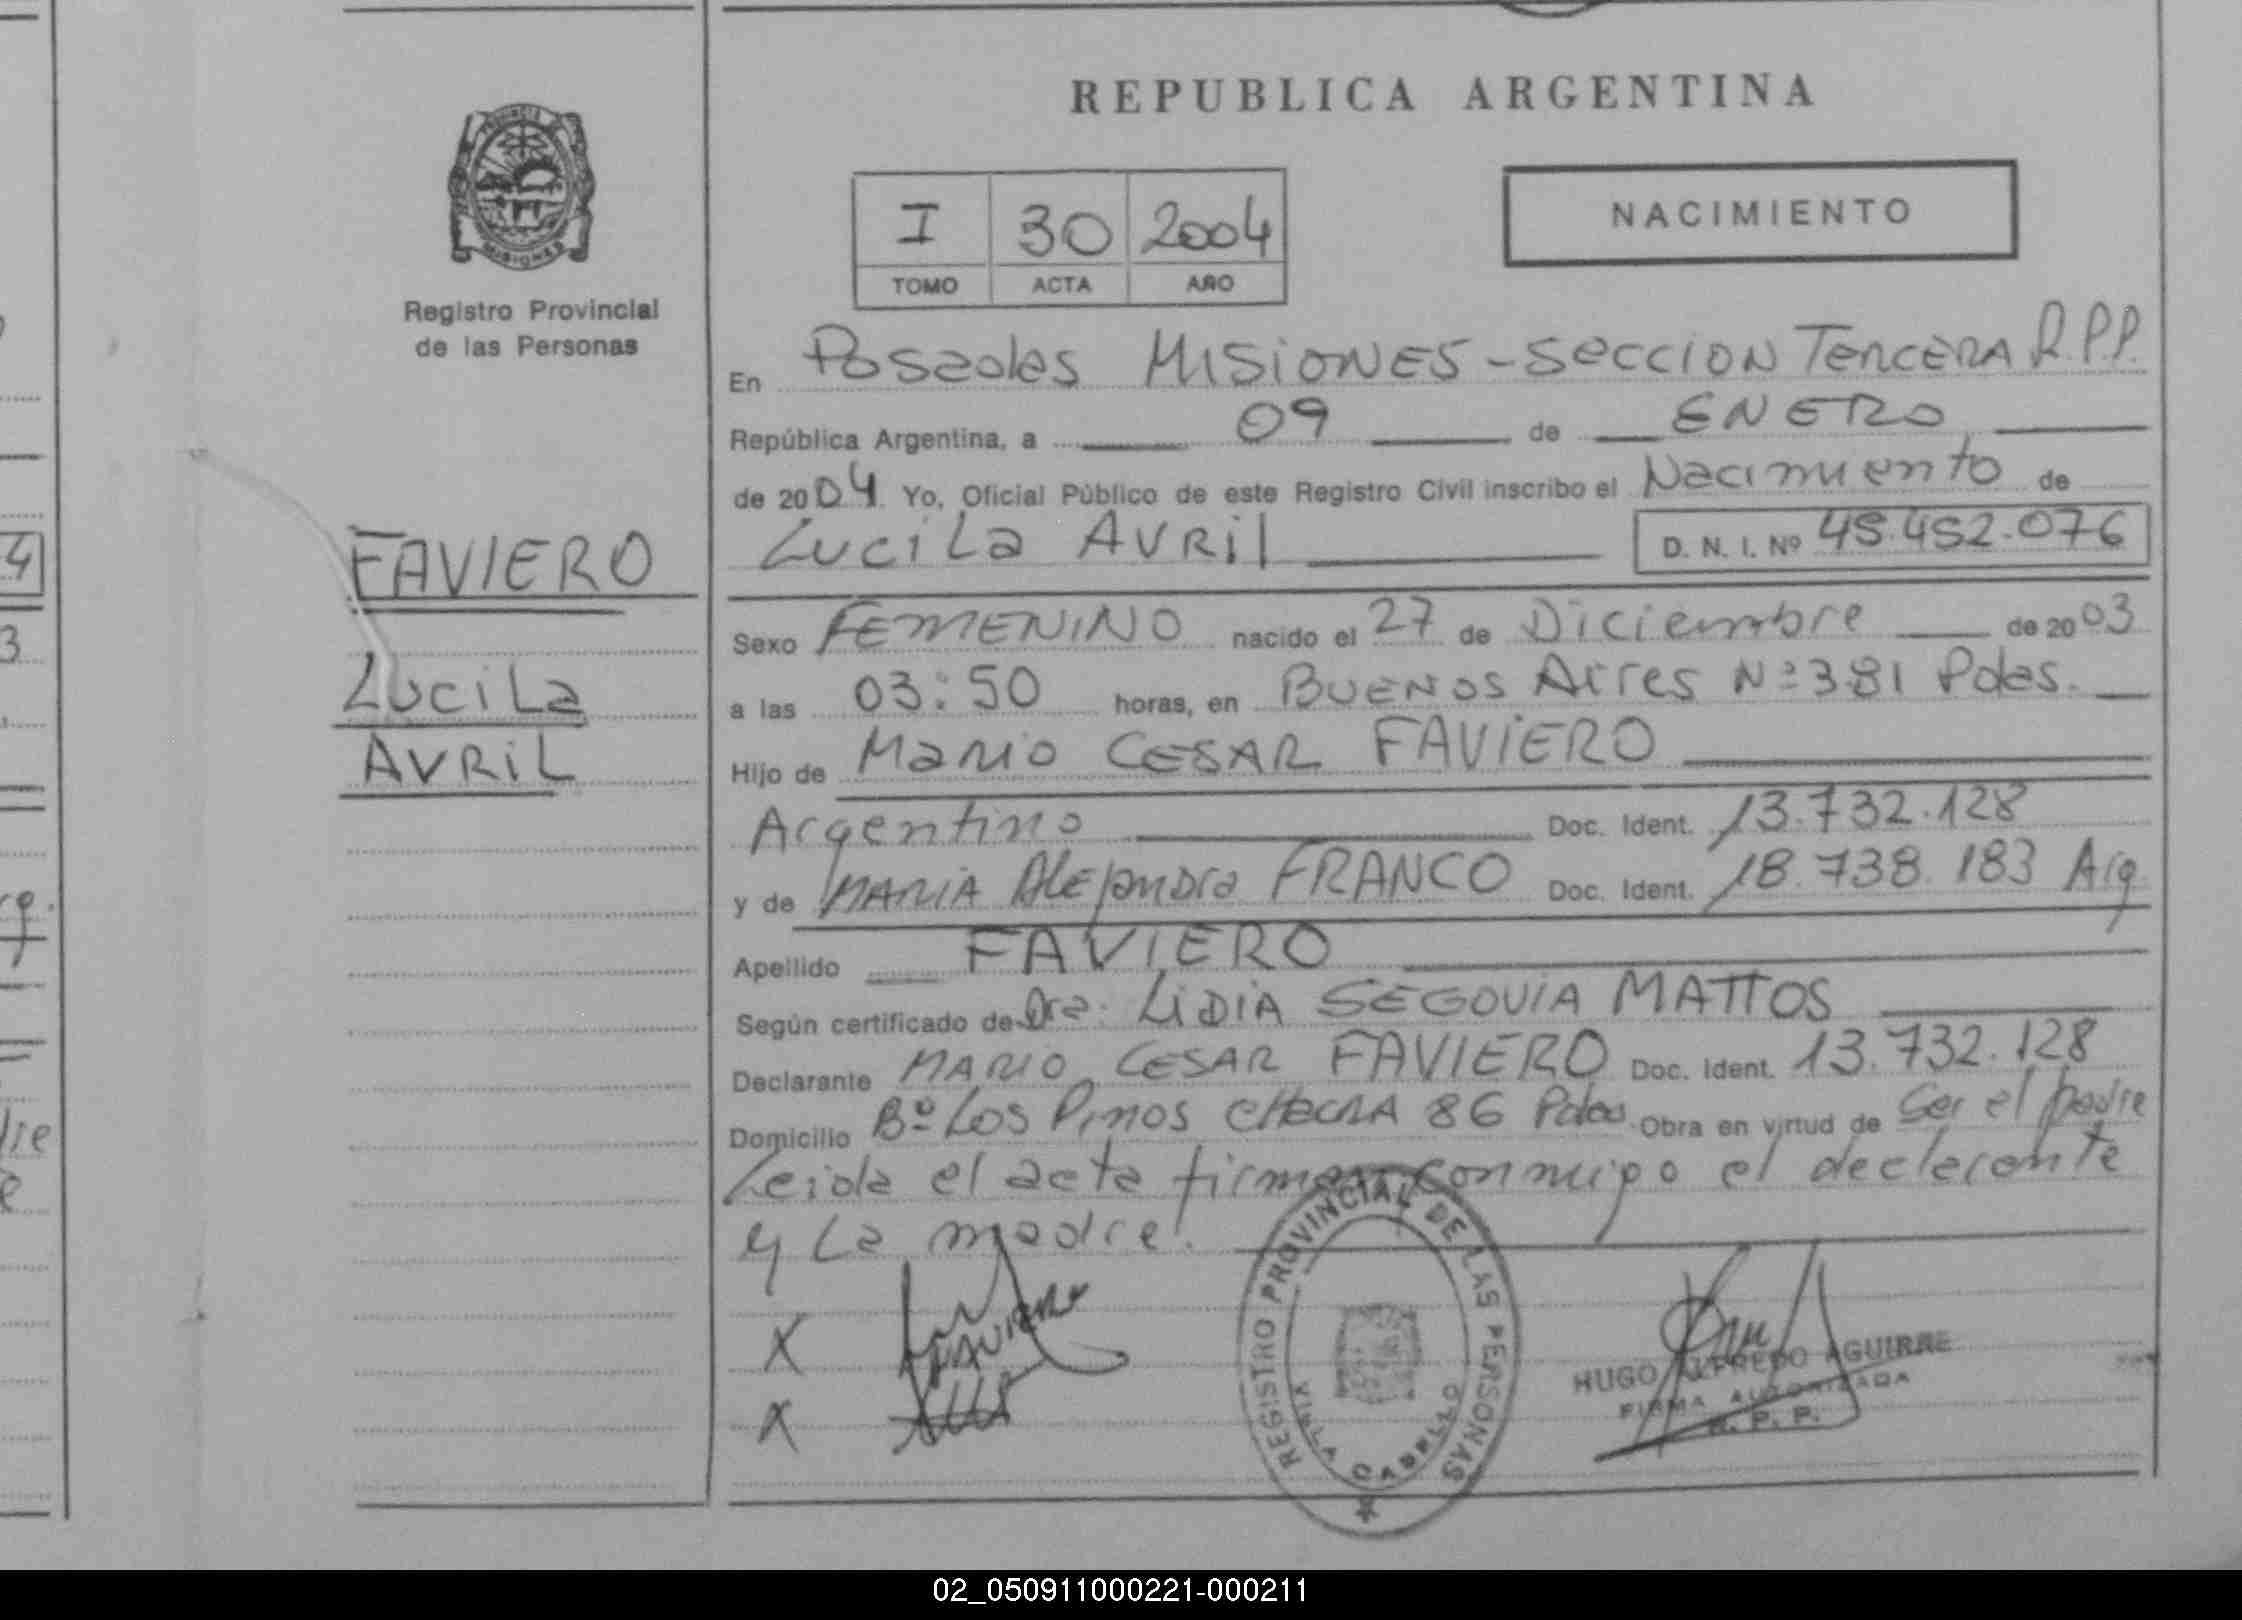 REPUBLICA ARGENTINA
PROVINCIA DE
MISIONES
Registro Provincial
de las Personas
I 30 2004
TOMO ACTA AÑO
NACIMIENTO
En Posadas MISIONES - SECCION TERCERA R.P.P.
República Argentina, a 09 de ENERO
de 2004. Yo, Oficial Público de este Registro Civil inscribo el Nacimiento de
Lucila AVRil D. N. I. Nº 45.452.076
FAVIERO
Lucila
AVRiL
Sexo FEMENINO nacido el 27 de Diciembre de 2003
a las 03:50 horas, en BUENOS Aires Nº 381 Pdas.
Hijo de Mario CESAR FAVIERO
Argentino Doc. Ident. 13.732.128
y de MARIA Alejandra FRANCO Doc. Ident. 18.738.183 Arg
Apellido FAVIERO
Según certificado de Dra. LIDIA SEGOVIA MATTOS
Declarante MARIO CESAR FAVIERO Doc. Ident. 13.732.128
Domicilio Bº Los Pinos CHACRA 86 Pdas. Obra en virtud de ser el padre
Leida el acta firman conmigo el declarante
y La madre.
X FAVIERO
X
REGISTRO PROVINCIAL DE LAS PERSONAS
VILLA CABELLO
HUGO ALFREDO AGUIRRE
FIRMA AUTORIZADA
R. P. P.
4
3
rg.
dre
02_050911000221-000211